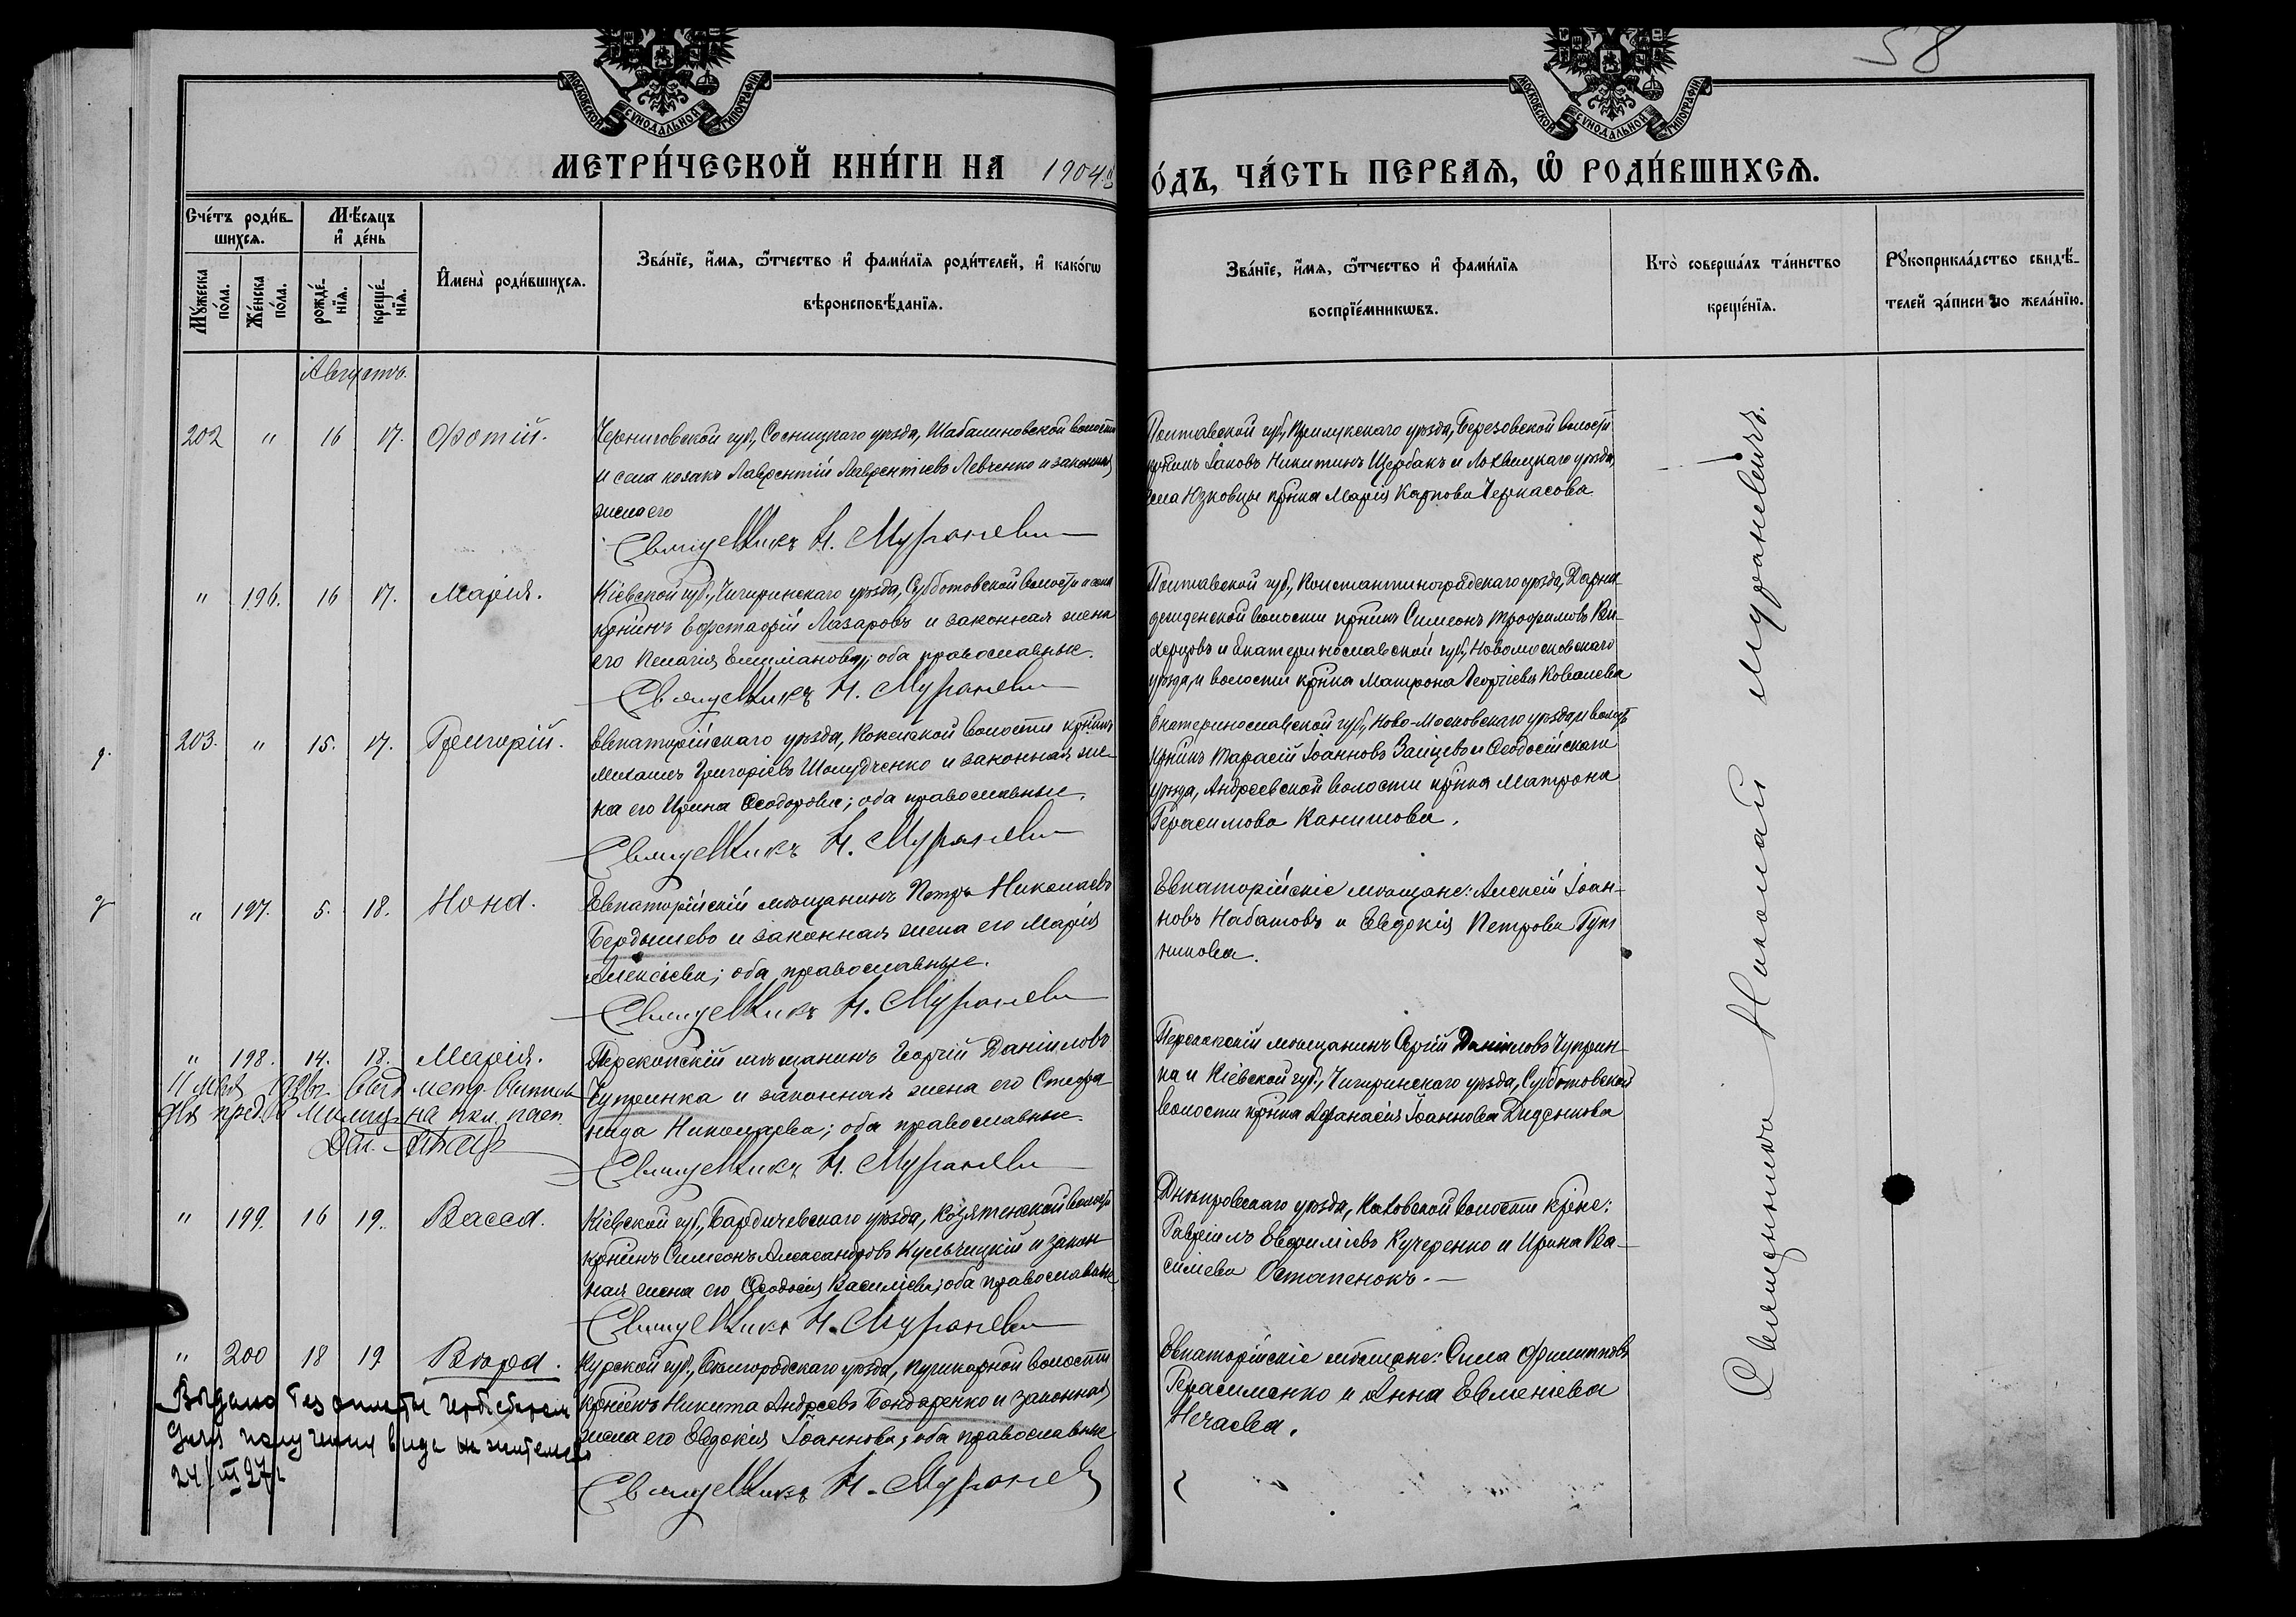 58
МОСКОВСКОЙ СѴНОДАЛЬНОЙ ТИПОГРАФІИ
МОСКОВСКОЙ СѴНОДАЛЬНОЙ ТИПОГРАФІИ
МЕТРИ́ЧЕСКОЙ КНИ́ГИ НА 1904 г
О́ДЪ, ЧА́СТЬ ПЕРВАѦ, Ѡ҆ РОДИ́ВШИХСѦ.
Сче́тъ роди́в-
шихсѧ.
Мꙋ́жеска по́ла.
Же́нска по́ла.
Мѣ́сѧцъ
и҆ де́нь
рожде́-
нїѧ.
креще́-
нїѧ.
И҆мена̀ роди́вшихсѧ.
Зва́нїе, и҆́мѧ, ѻ҆́тчество и҆ фами́лїѧ роди́телей, и҆ како́гѡ
вѣроисповѣ́данїѧ.
Зва́нїе, и҆́мѧ, ѻ҆́тчество и҆ фами́лїѧ
воспрїе́мникѡвъ.
Кто̀ соверша́лъ та́инство
креще́нїѧ.
Рꙋкоприкла́дство свидѣ́-
телей за́писи по жела́нїю.
Августъ.
202 " 16 17. Фотій.
Черниговской губ., Сосницкаго уѣзда, Шабалиновской волости
и села козакъ Лаврентій Лаврентіевъ Левченко и законная
жена его
Священникъ Н. Мураневи
Полтавской губ., Прилукскаго уѣзда, Березовской волости
крнинъ Іаковъ Никитинъ Щербакъ и Лохвицкаго уѣзда,
села Юзковцы крнка Марія Карпова Черкасова.
" 196. 16 17. Марія.
Кіевской губ., Чигиринскаго уѣзда, Субботовской волости и села
крнинъ Евстафій Лазаровъ и законная жена
его Пелагія; оба православные.
Священникъ Н. Мураневи
Полтавской губ., Константиноградскаго уѣзда, Дарни-
деиденской волости крнинъ Симеонъ Трофимовъ Ви-
херцовъ и Екатеринославской губ., Новомосковскаго
уѣзда, и волости крнка Матрона Георгіева Ковалева
203. " 15. 17. Григорій.
Евпаторійскаго уѣзда, волости крнинъ
Михаилъ Григоріевъ Шолудченко и законная же-
на его Ирина Ѳеодорова; оба православные.
Священникъ Н. Мураневи
Екатеринославской губ., Ново-Московскаго уѣзда, и волости
крнинъ Тарасій Іоанновъ Зайцевъ и Ѳеодосійскаго
уѣзда, Андреевской волости крнка Матрона
Герасимова Канишова.
" 197. 5. 18. Нона.
Евпаторійскій мѣщанинъ Петръ Николаевъ
Бердышевъ и законная жена его Марія
Алексѣева; оба православные.
Священникъ Н. Мураневи
Евпаторійскіе мѣщане: Алексій Іоан-
новъ Набатовъ и Евдокія Петрова Гун
никова.
" 198. 14. 18. Марія.
Перекопскій мѣщанинъ Георгій Даніиловъ
Чупринка и законная жена его Стефа-
нида Николаева; оба православные.
Священникъ Н. Мураневи
Перекопскій мѣщанинъ Сергій Даніиловъ Чуприн-
ка и Кіевской губ., Чигиринскаго уѣзда, Субботовской
волости крнка Аѳанасія Іоаннова Диденкова
выд метр. выписка
для пред. в Милиц. на
" 199. 16 19. Васса.
Кіевской губ., Бердичевскаго уѣзда, Козятинской волости
крнинъ Симеонъ Александровъ Кульчицкій и закон-
ная жена его Ѳеодосія Василіева; оба православные
Священникъ Н. Мураневи
Днѣпровскаго уѣзда, Каховской волости крне:
Гавріилъ Евфиміевъ Кучеренко и Ирина Ва-
силіева Остапенокъ.—
" 200 18 19. Ѳеодора.
Курской губ., Бѣлгородскаго уѣзда, Пушкарной волости
крнинъ Никита Андреевъ Бондаренко и законная
жена его Евдокія Іоаннова; оба православные
Священникъ Н. Мураневи
Евпаторійскіе мѣщане: Сила Филипповъ
Герасименко и Анна Евменіева
Нечаева.
Выдана без оплаты гербсбором
для получения вида на жительство
24/III 27 г
Священникъ Николай Мураневичъ.